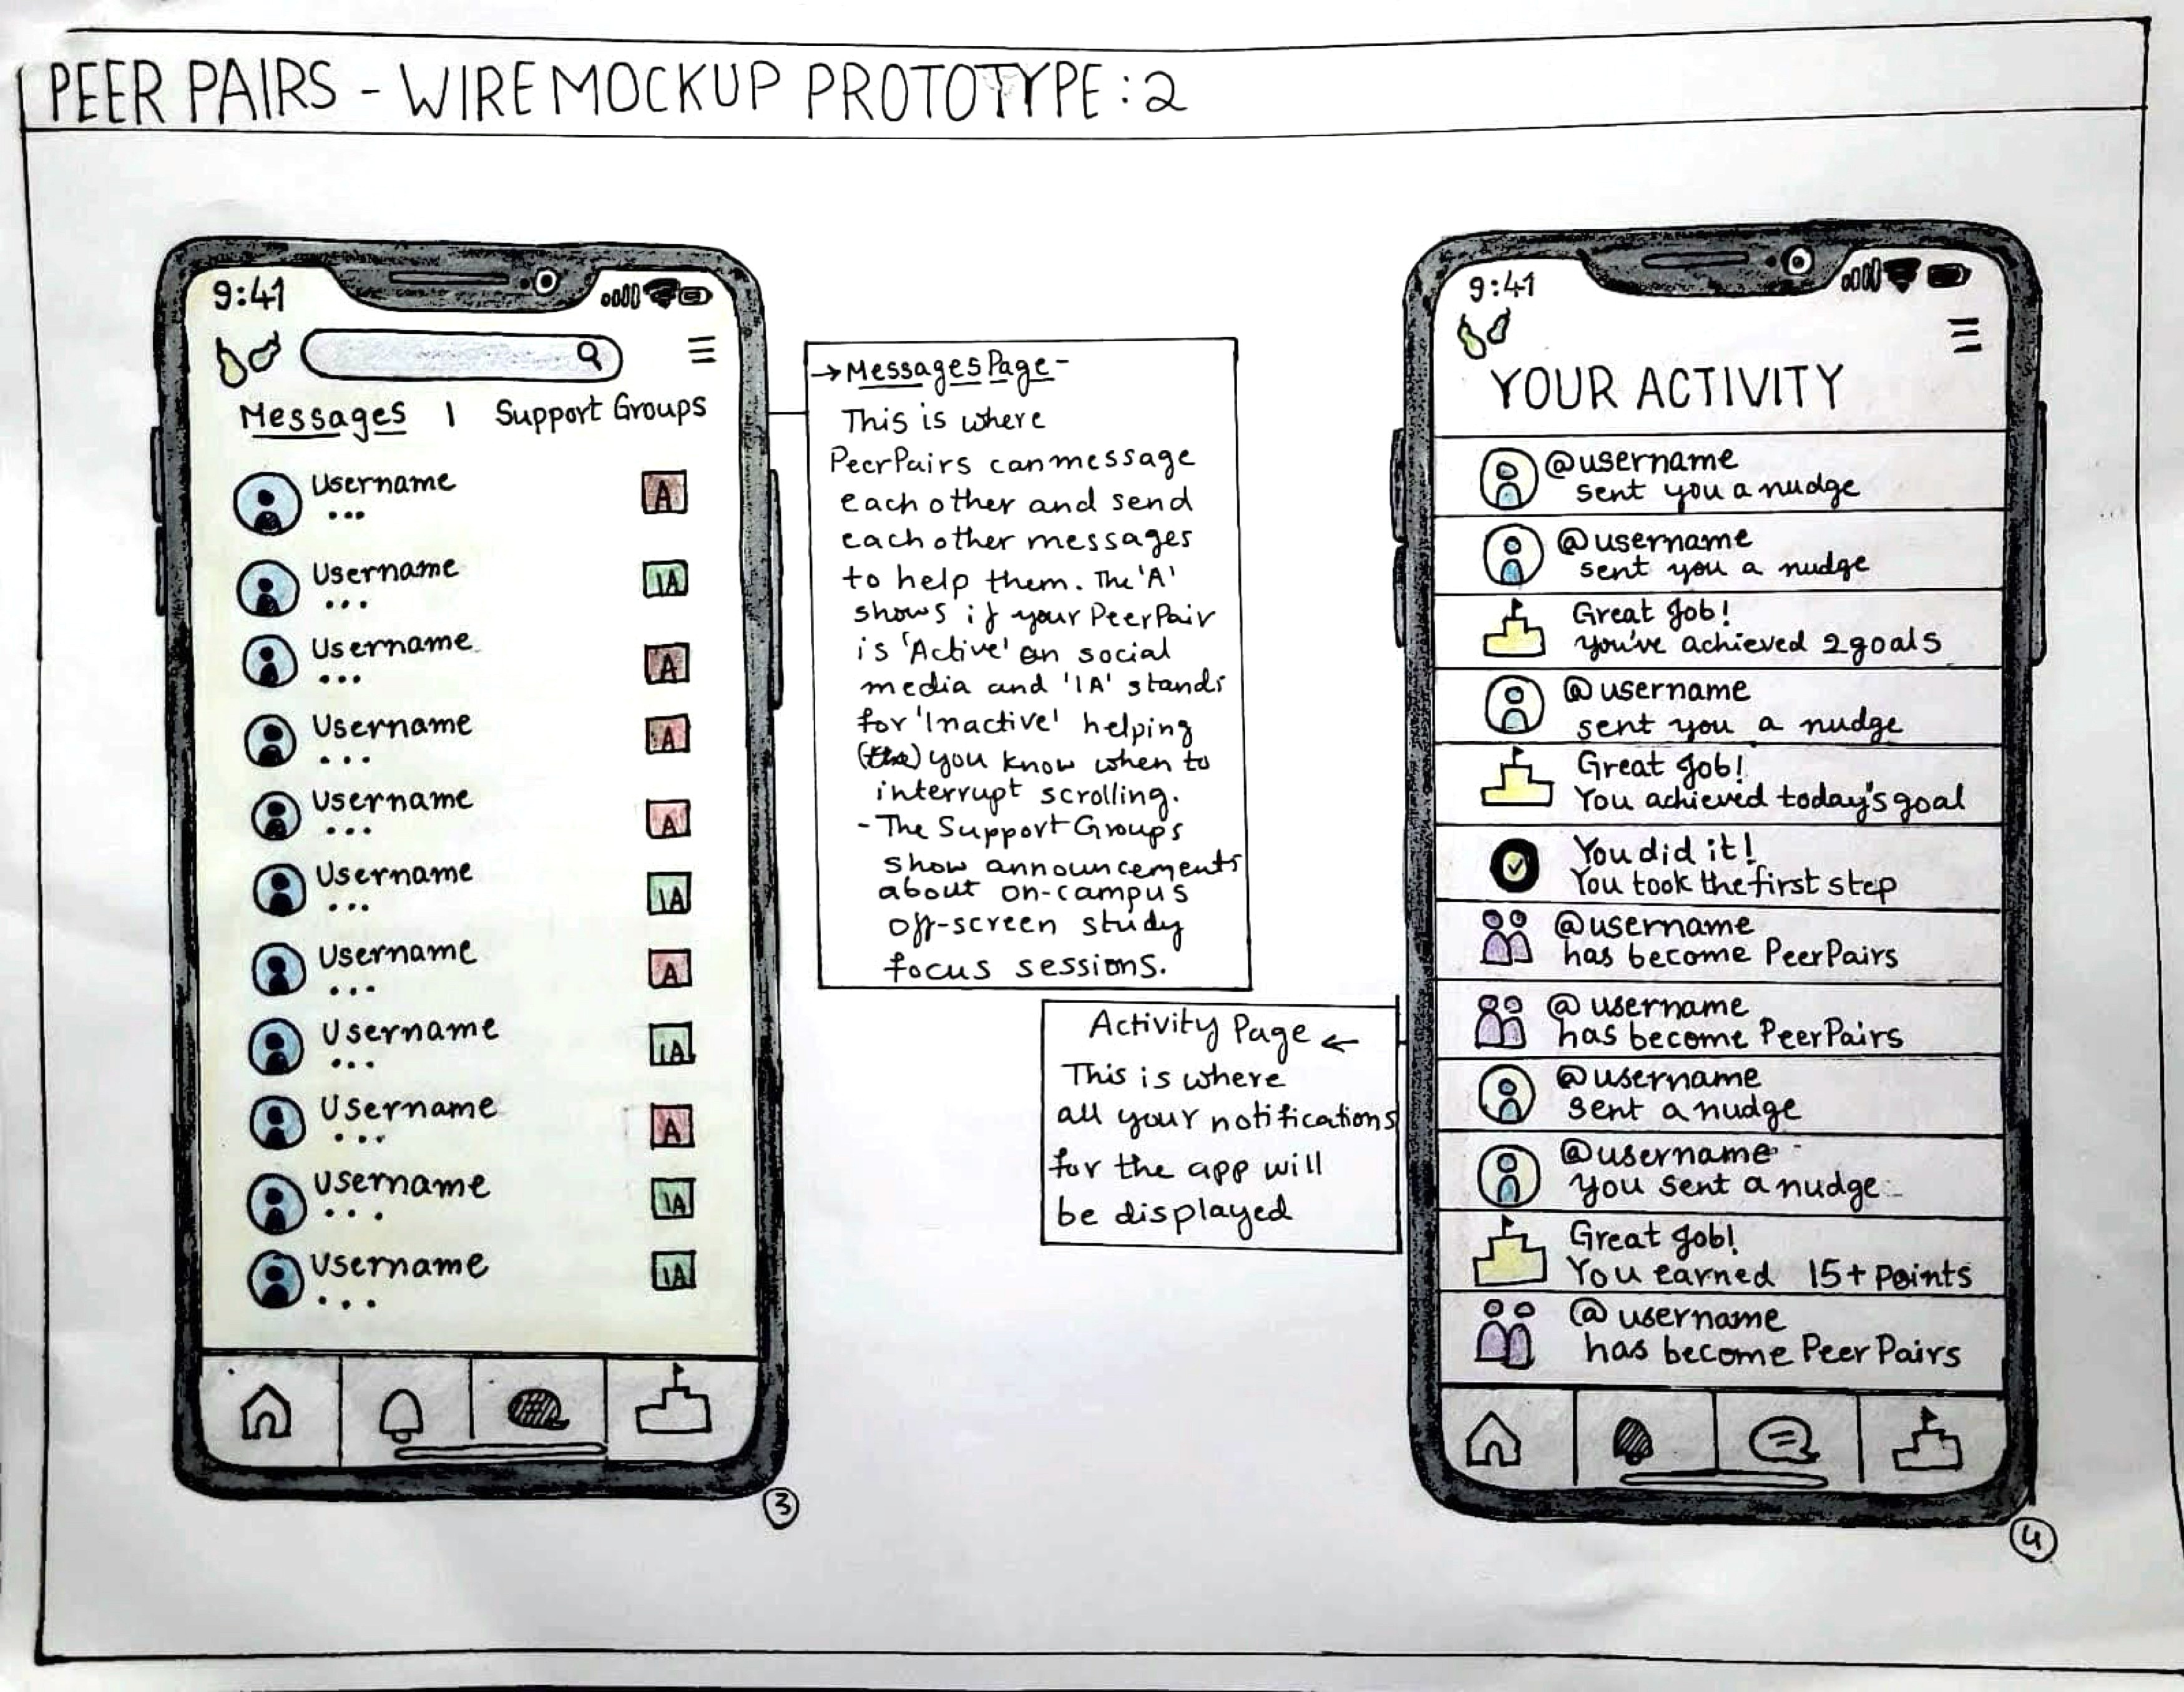 PEER PAIRS - WIRE MOCKUP PROTOTYPE : 2
9:41
Messages | Support Groups
Username
...
A
Username
...
IA
Username
...
A
Username
...
A
Username
...
A
Username
...
IA
Username
...
A
Username
...
IA
Username
...
A
Username
...
IA
Username
...
IA
3
→ Messages Page -
This is where
PeerPairs can message
each other and send
each other messages
to help them. The 'A'
shows if your PeerPair
is 'Active' on social
media and 'IA' stands
for 'Inactive' helping
(the) you know when to
interrupt scrolling.
- The Support Groups
show announcements
about on-campus
off-screen study
focus sessions.
Activity Page ←
This is where
all your notifications
for the app will
be displayed
9:41
YOUR ACTIVITY
@username
sent you a nudge
@username
sent you a nudge
Great Job!
You've achieved 2 goals
@username
sent you a nudge
Great Job!
You achieved today's goal
You did it!
You took the first step
@username
has become PeerPairs
@username
has become PeerPairs
@username
sent a nudge
@username
you sent a nudge
Great Job!
You earned 15+ points
@username
has become Peer Pairs
4